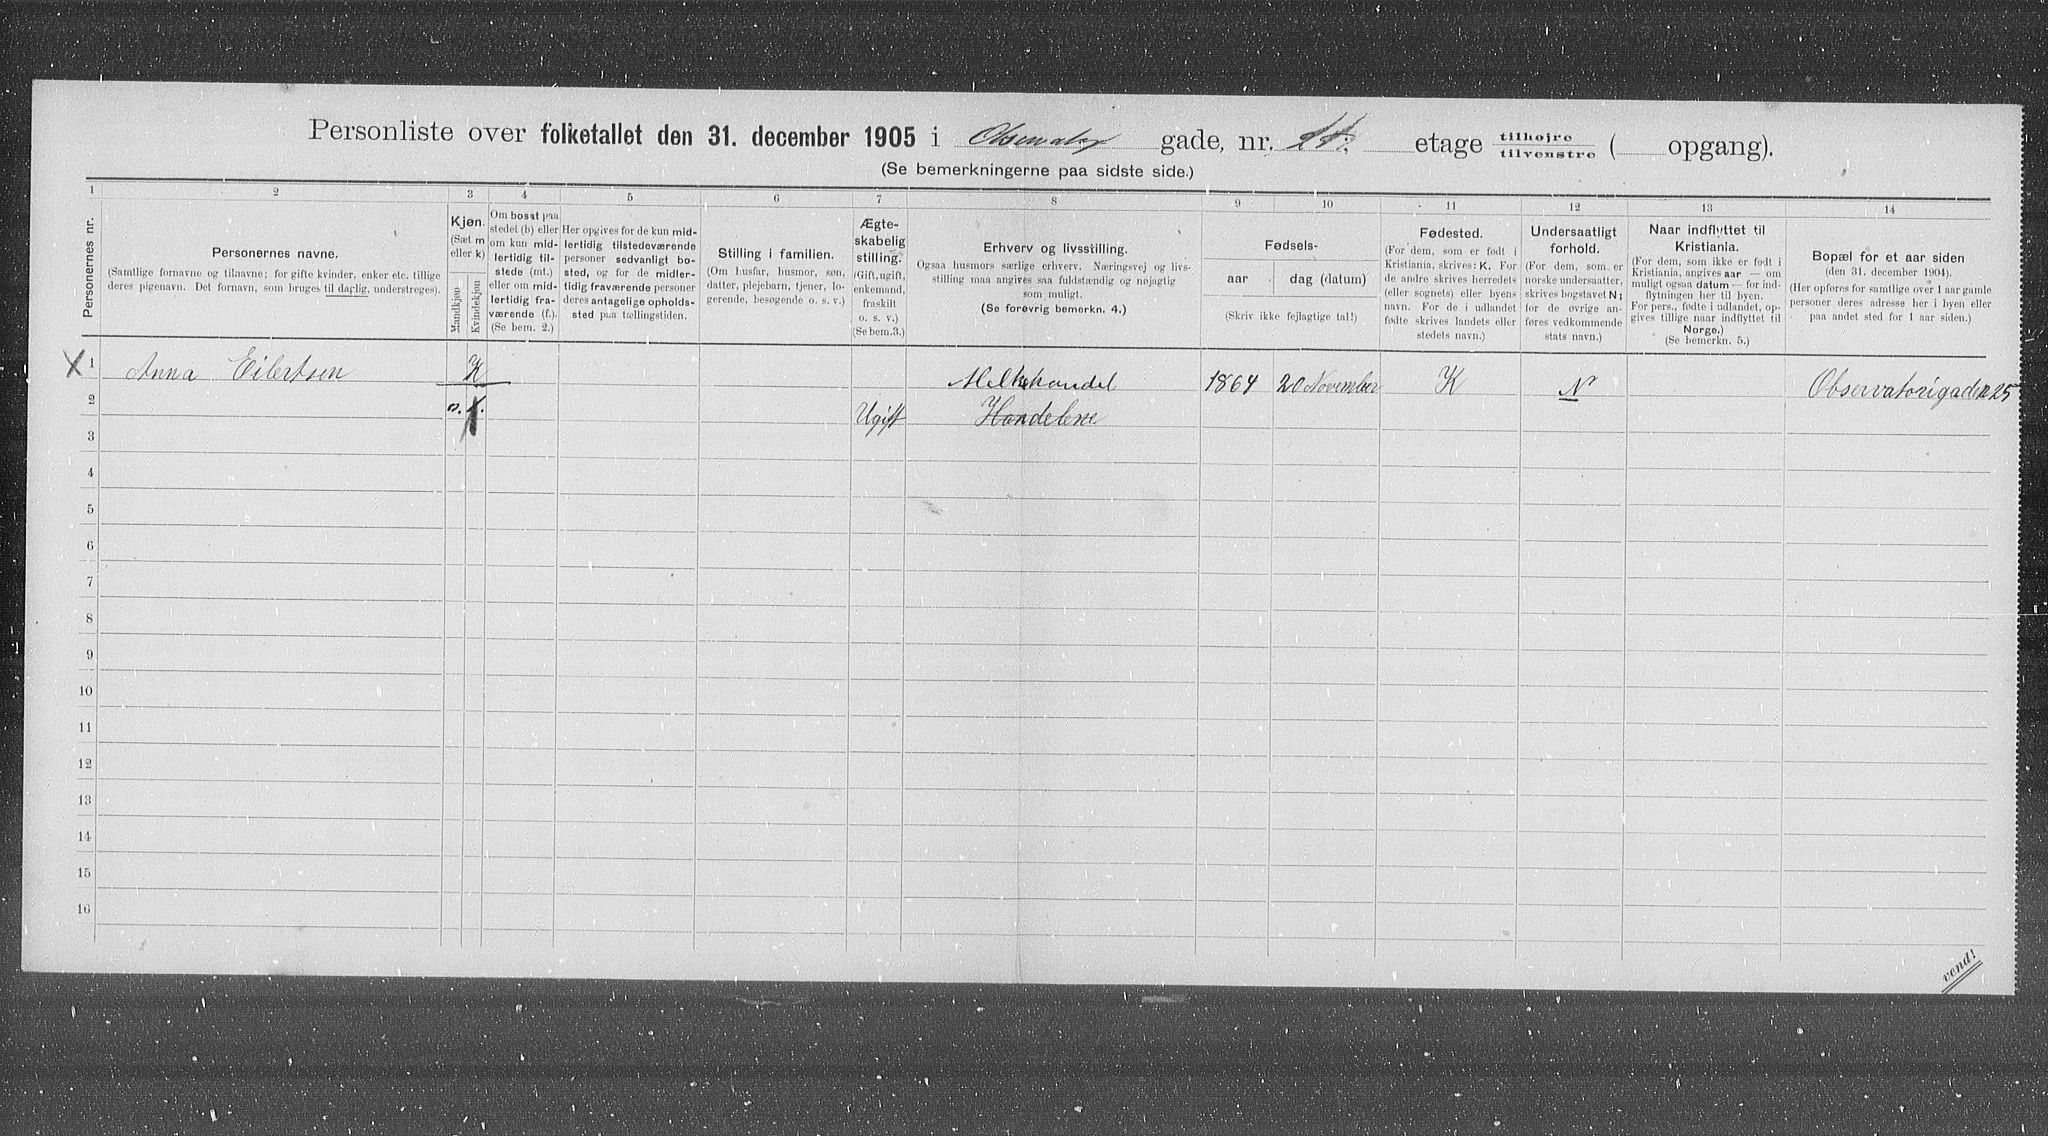 Personliste over folketallet den 31. december 1905 i Observator gade, nr. etage tilhøjre tilvenstre ( opgang).
(Se bemerkningerne paa sidste side.)
1 2 3 4 5 6 7 8 9 10 11 12 13 14
Personernes nr.
Personernes navne.
(Samtlige fornavne og tilnavne; for gifte kvinder, enker etc. tillige
deres pigenavn. Det fornavn, som bruges til daglig, understreges).
Kjøn.
(Sæt m
eller k)
Mandkjøn
Kvindekjøn
Om bosat paa
stedet (b) eller
om kun mid-
lertidig til-
stede (mt.)
eller om mid-
lertidig fra-
værende (f.).
(Se bem. 2.)
Her opgives for de kun mid-
lertidig tilstedeværende
personer sedvanligt bo-
sted, og for de midler-
tidig fraværende personer
deres antagelige opholds-
sted paa tællingstiden.
Stilling i familien.
(Om husfar, husmor, søn,
datter, plejebarn, tjener, lo-
gerende, besøgende o. s. v.)
Ægte-
skabelig
stilling.
(Gift, ugift,
enkemand,
fraskilt
o. s. v.)
(Se bem. 3.)
Erhverv og livsstilling.
Ogsaa husmors særlige erhverv. Næringsvej og livs-
stilling maa angives saa fuldstændig og nøjagtig
som muligt.
(Se forøvrig bemerkn. 4.)
Fødsels-
aar dag (datum)
(Skriv ikke fejlagtige tal!)
Fødested.
(For dem, som er født i
Kristiania, skrives: K. For
de andre skrives herredets
(eller sognets) eller byens
navn. For de i udlandet
fødte skrives landets eller
stedets navn.)
Undersaatligt
forhold.
(For dem, som er
norske undersaatter,
skrives bogstavet N;
for de øvrige an-
føres vedkommende
stats navn.)
Naar indflyttet til
Kristiania.
(For dem, som ikke er født i
Kristiania, angives aar — om
muligt ogsaa datum — for ind-
flytningen her til byen.
For pers., fødte i udlandet, op-
gives tillige naar indflyttet til
Norge.)
(Se bemerkn. 5.)
Bopæl for et aar siden
(den 31. december 1904).
(Her opføres for samtlige over 1 aar gamle
personer deres adresse her i byen eller
paa andet sted for 1 aar siden.)
X 1 Anna Eilertsen K Melkehandel 1864 20 November K N Observatorigaden 25
2 Ugift Handelene
3
4
5
6
7
8
9
10
11
12
13
14
15
16
vend!